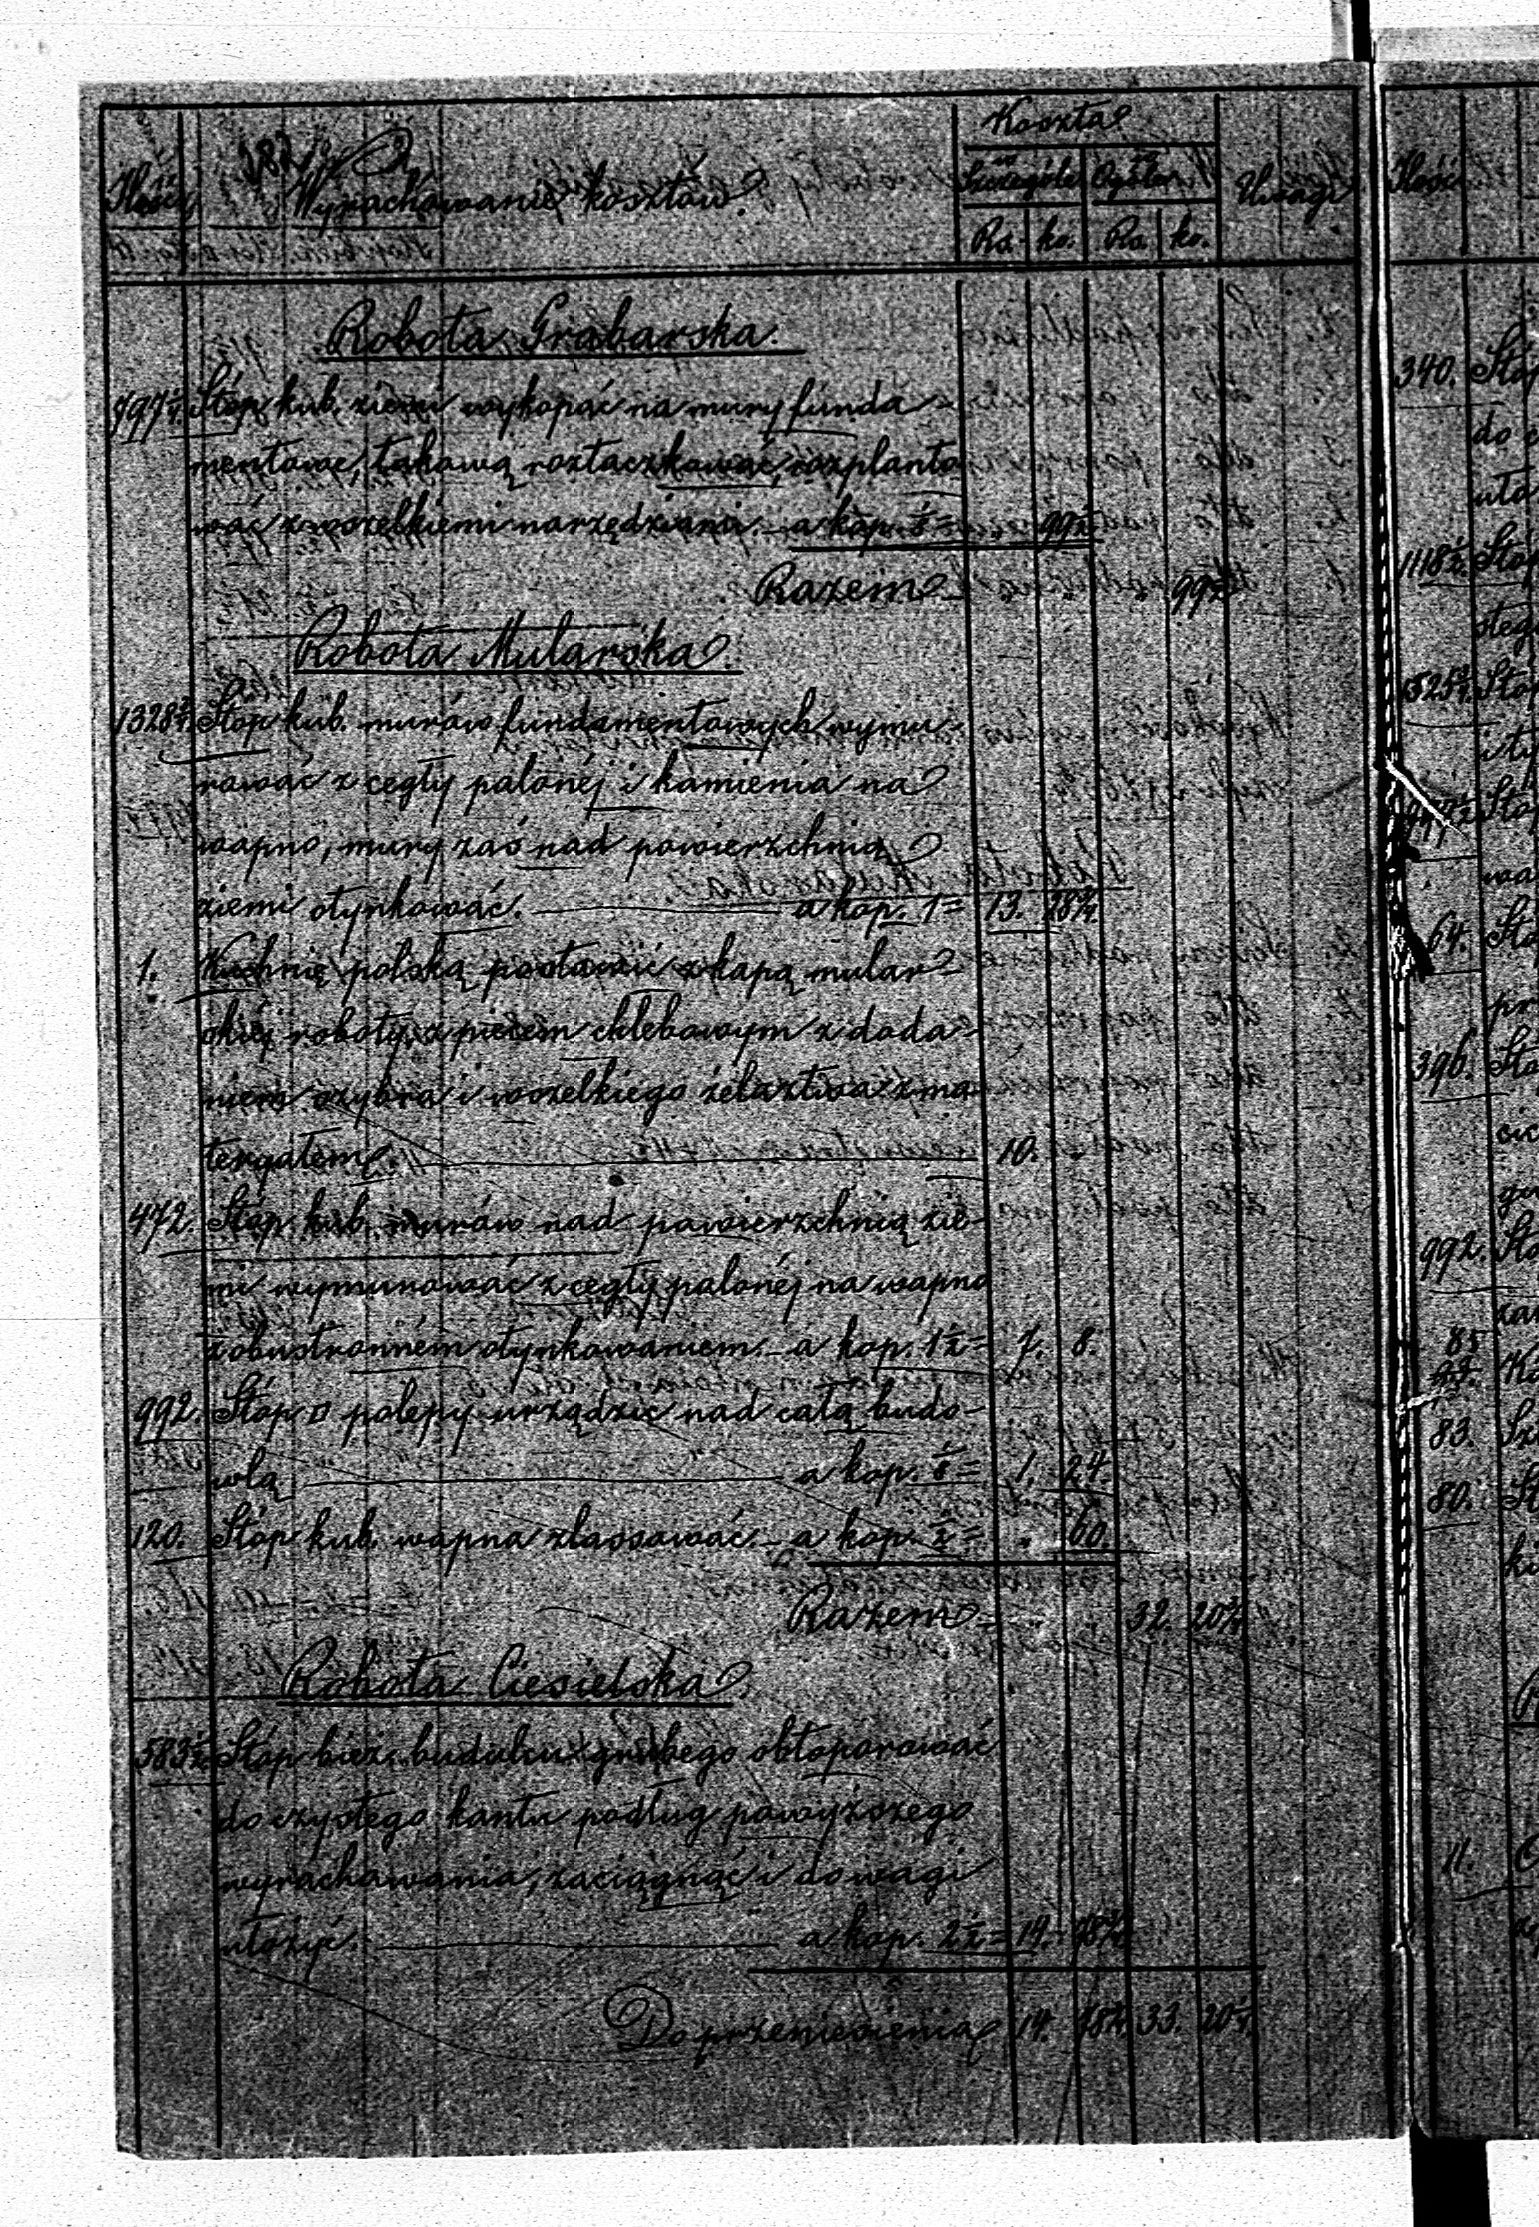 Koszta
Ilość Wyrachowanie kosztów. Szczegóło Ogółow Uwagi
Rs. ko. Rs. ko.
Robota Grabarska.
797 1/4. Stóp kub. ziemi wykopać na mury funda-
mentowe, takową roztaczkować, rozplanto
wać z wszelkiemi narzędziami. a kop. 1/8 = . 99 1/2
Razem 99 1/2
Robota Mularska.
1328 3/4. Stóp kub. murów fundamentowych wymu-
rować z cegły palonéj i kamienia na
wapno, mury zaś nad powierzchnią
ziemi otynkować. a kop. 1 = 13. 28 3/4.
1. Kuchnię polską postawić z kapą mular-
skiéj roboty, z piecem chlebowym z doda-
niem szybra i wszelkiego żelaztwa z ma-
teryałem. 10.
472. Stóp kub. murów nad powierzchnią zie-
mi wymurować z cegły palonéj na wapno
z obustronném otynkowaniem. a kop. 1 1/2 = 7. 8.
992. Stóp □ polepy urządzić nad całą budo-
wlą a kop. 1/8 = 1. 24.
120. Stóp kub. wapna zlassować. a kop. 1/2 = . 60.
Razem 32. 20 3/4
Robota Ciesielska
583 1/2 Stóp bież. budulcu grubego obtoporować
do czystego kantu podług powyższego
wyrachowania, zaciągnąć i do wagi
ułożyć. a kop. 2 1/2 = 14. 58 3/4
Do przeniesienia 14. 58 3/4 33. 20 1/4.
Ilość
340.
do
1118 1/2
64.
396.
992.
85
83.
80.
11.